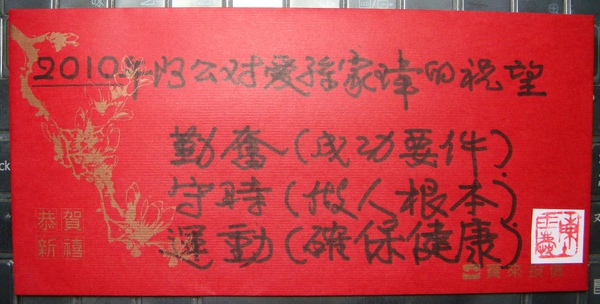 2010年阿公对爱孫家瑋的祝望
勤奮(成功要件)
守時(做人根本)
運動(確保健康)
恭賀
新禧
寶來投信